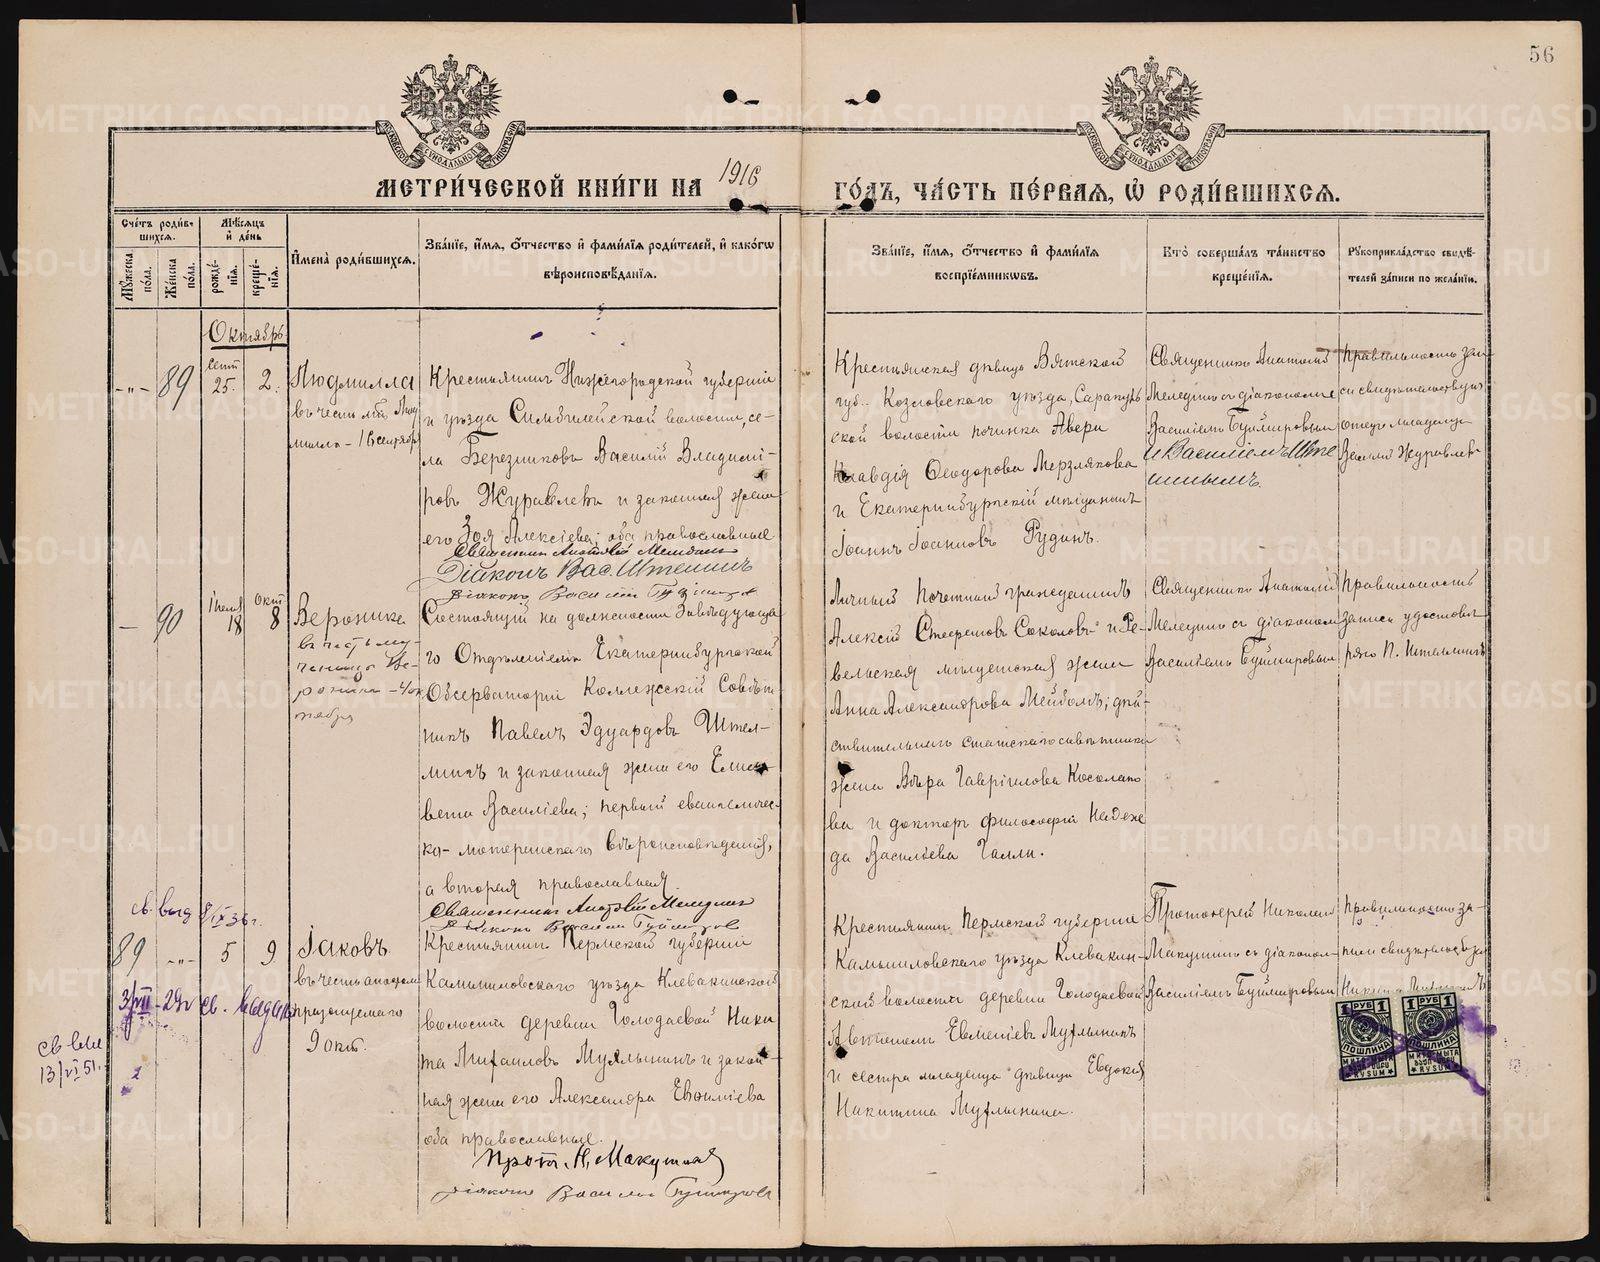 56
МОСКОВСКОЙ СѴНОДАЛЬНОЙ ТИПОГРАФІИ
МОСКОВСКОЙ СѴНОДАЛЬНОЙ ТИПОГРАФІИ
МЕТРИ́ЧЕСКОЙ КНИ́ГИ НА 1916
ГО́ДЪ, ЧА́СТЬ ПЕ́РВАЯ, Ѡ҆ РОДИ́ВШИХСЯ.
Сче́тъ роди́в-
шихся.
Мѣ́сяцъ
и҆ де́нь
Му́жеска по́ла.
Же́нска по́ла.
рожде́-
нія.
креще́-
нія.
И҆мена̀ роди́вшихся.
Зва́ніе, и҆́мя, ѻ҆́тчество и҆ фами́лія роди́телей, и҆ како́гѡ
вѣроисповѣ́данія.
Зва́ніе, и҆́мя, ѻ҆́тчество и҆ фами́лія
воспріе́мникѡвъ.
Кто̀ соверша́лъ та́инство
креще́нія.
Рꙋкоприкла́дство свидѣ́-
телей за́писи по жела́нію.
Октябрь
-„- 89
Сент
25. 2.
Людмилла
въ честь мц. Люд
миллы - 16 сентября
Крестьянинъ Нижегородской губерніи
и уѣзда Симбилейской волости, се-
ла Березникова Василій Владимі-
ровъ Журавлевъ и законная жена
его Зоя Алексіева; оба православные
Священникъ Анатолій Мелединъ
Діаконъ Вас. Штенинъ
Діаконъ Василій Буймировъ
Крестьянская дѣвица Вятской
губ. Козловскаго уѣзда, Сарапуль
ской волости починка Авери
Клавдія Ѳеодорова Мерзлякова
и Екатеринбургскій мѣщанинъ
Іоаннъ Іоанновъ Рудинъ.
Священникъ Анатолій
Мелединъ съ діакономъ
Василіемъ Буймировымъ
и Василіемъ Ште
нинымъ
Правильность запи
си свидѣтельствую
отецъ младенца
Василій Журавлевъ
— 90
18
Окт
8
Вероника
въ честь му-
ченицы Ве-
роники - 4 ок
тября
Состоящій на должности Завѣдующа
го Отдѣленіемъ Екатеринбургской
Обсерваторіи Коллежскій Совѣт
никъ Павелъ Эдуардовъ Штел-
лингъ и законная жена его Елиса-
вета Василіева; первый евангеличес-
ко-лютеранскаго вѣроисповѣданія,
а вторая православная.
Священникъ Анатолій Мелединъ
Діаконъ Василій Буймировъ
Личный Почетный гражданинъ
Алексій Стефановъ Соколовъ и Ре-
вельская мѣщанская жена
Анна Александрова Мейбомъ; дѣй-
ствительнаго статскаго совѣтника
жена Вѣра Гавріилова Косолапо
ва и докторъ философіи Надеж
да Васильева Галли.
Священникъ Анатолій
Мелединъ съ діакономъ
Василіемъ Буймировымъ
Правильность
записи удостовѣ
ряю П. Штеллингъ
св. выд 8/IX 36 г.
89 -„- 5 9
Іаковъ.
въ честь апостола
празднуемаго
9 окт.
3/VII - 29г св. выдана
св выд
13/VI 51.
Крестьянинъ Пермской губерніи
Камышловскаго уѣзда Клевакинской
волости деревни Голодаевой Ники
та Михаиловъ Мухлынинъ и закон-
ная жена его Александра Евѳиміева
оба православные.
Прот. Н. Макушинъ
Діаконъ Василій Буймировъ
Крестьянинъ Пермской губерніи
Камышловскаго уѣзда Клевакин-
ской волости деревни Голодаевой
Евменіевъ Мухлынинъ
и сестра младенца дѣвица Евдокія
Никитина Мухлынина.
Протоіерей Николай
Макушинъ съ діаконом
Василіемъ Буймировымъ
Правильность за-
писи свидѣтельствую
Никита
1 РУБ 1
ПОШЛИНА
1 РУБ 1
ПОШЛИНА
METRIKI.GASO-URAL.RU